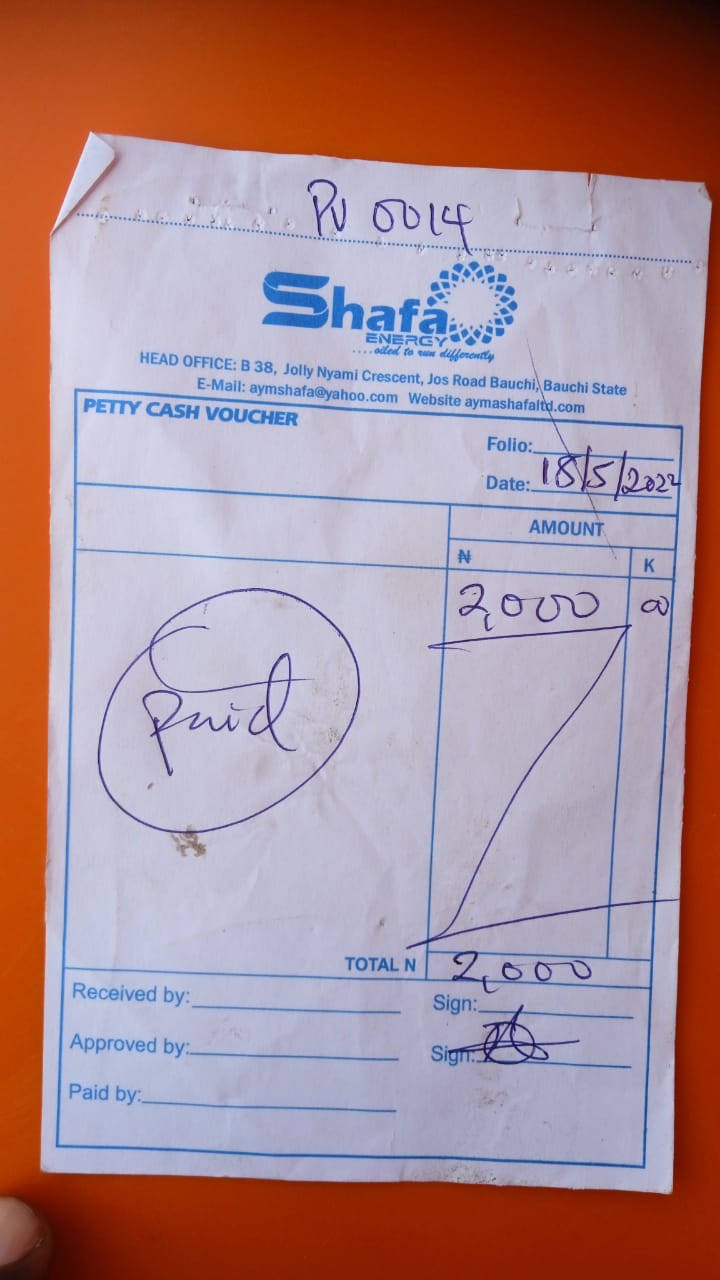 PV 0014
Shafa
ENERGY
....oiled to run differently
HEAD OFFICE: B 38, Jolly Nyami Crescent, Jos Road Bauchi, Bauchi State
E-Mail: aymshafa@yahoo.com Website aymashafaltd.com
PETTY CASH VOUCHER
Folio:
Date: 18/5/2022
AMOUNT
₦ K
2,000 00
Paid
TOTAL N 2,000
Received by: Sign:
Approved by: Sign:
Paid by: